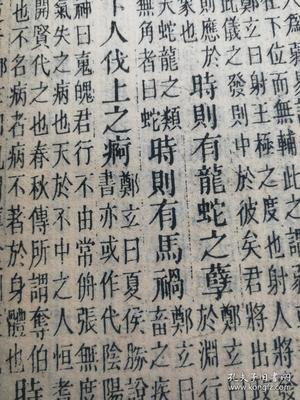 在下位而無輔此
鄭立曰射王極之度也射人將
此儀之發則中於彼矣君將出
則應於
時則有龍蛇之孽
鄭立曰
於淵行
天蛇龍之類
無角者曰蛇
時則有馬禍
鄭立
畜之疾
下人伐上之痾
鄭立曰夏侯勝說
書亦或作代陰陽
神曰魂魄君行不由常侜張無度
氣失之病也天於不中之人恒耆
開賢代之也春秋傳所謂奪伯
也不名病者病不著於身體也
時